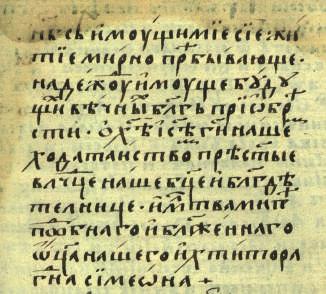 нѣсь имоущими їе сїе жи
тїе мирно прѣбывающе·
надеждоу имоуще боудоу
щи вѣчныи бл҃гь прїѡбрѣ
сти· ѡ х҃ѣ і҃сѣ г҃и наше
ходатаиство прѣст҃ые
вл҃чце наше б҃це и благодѣ
телнице· и мл҃твами п
пѡбнаго и блаженнаго
ѿца нашего и хтитора
г҃на сімеѡна +